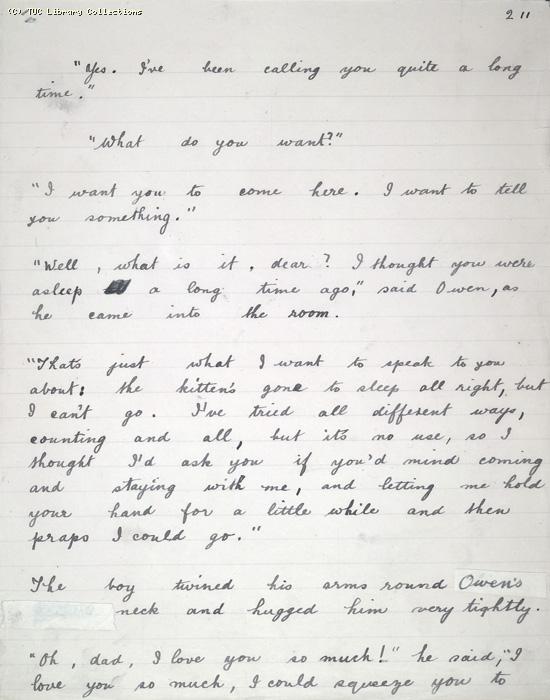 (C) TUC Library Collections
211
"Yes. I've been calling you quite a long
time."
"What do you want?"
"I want you to come here. I want to tell
you something."
"Well, what is it, dear? I thought you were
asleep a long time ago," said Owen, as
he came into the room.
"Thats just what I want to speak to you
about: the kitten's gone to sleep all right, but
I can't go. I've tried all different ways,
counting and all, but its no use, so I
thought I'd ask you if you'd mind coming
and staying with me, and letting me hold
your hand for a little while and then
praps I could go."
The boy twined his arms round Owen's
neck and hugged him very tightly.
"Oh, dad, I love you so much!" he said, "I
love you so much, I could squeeze you to